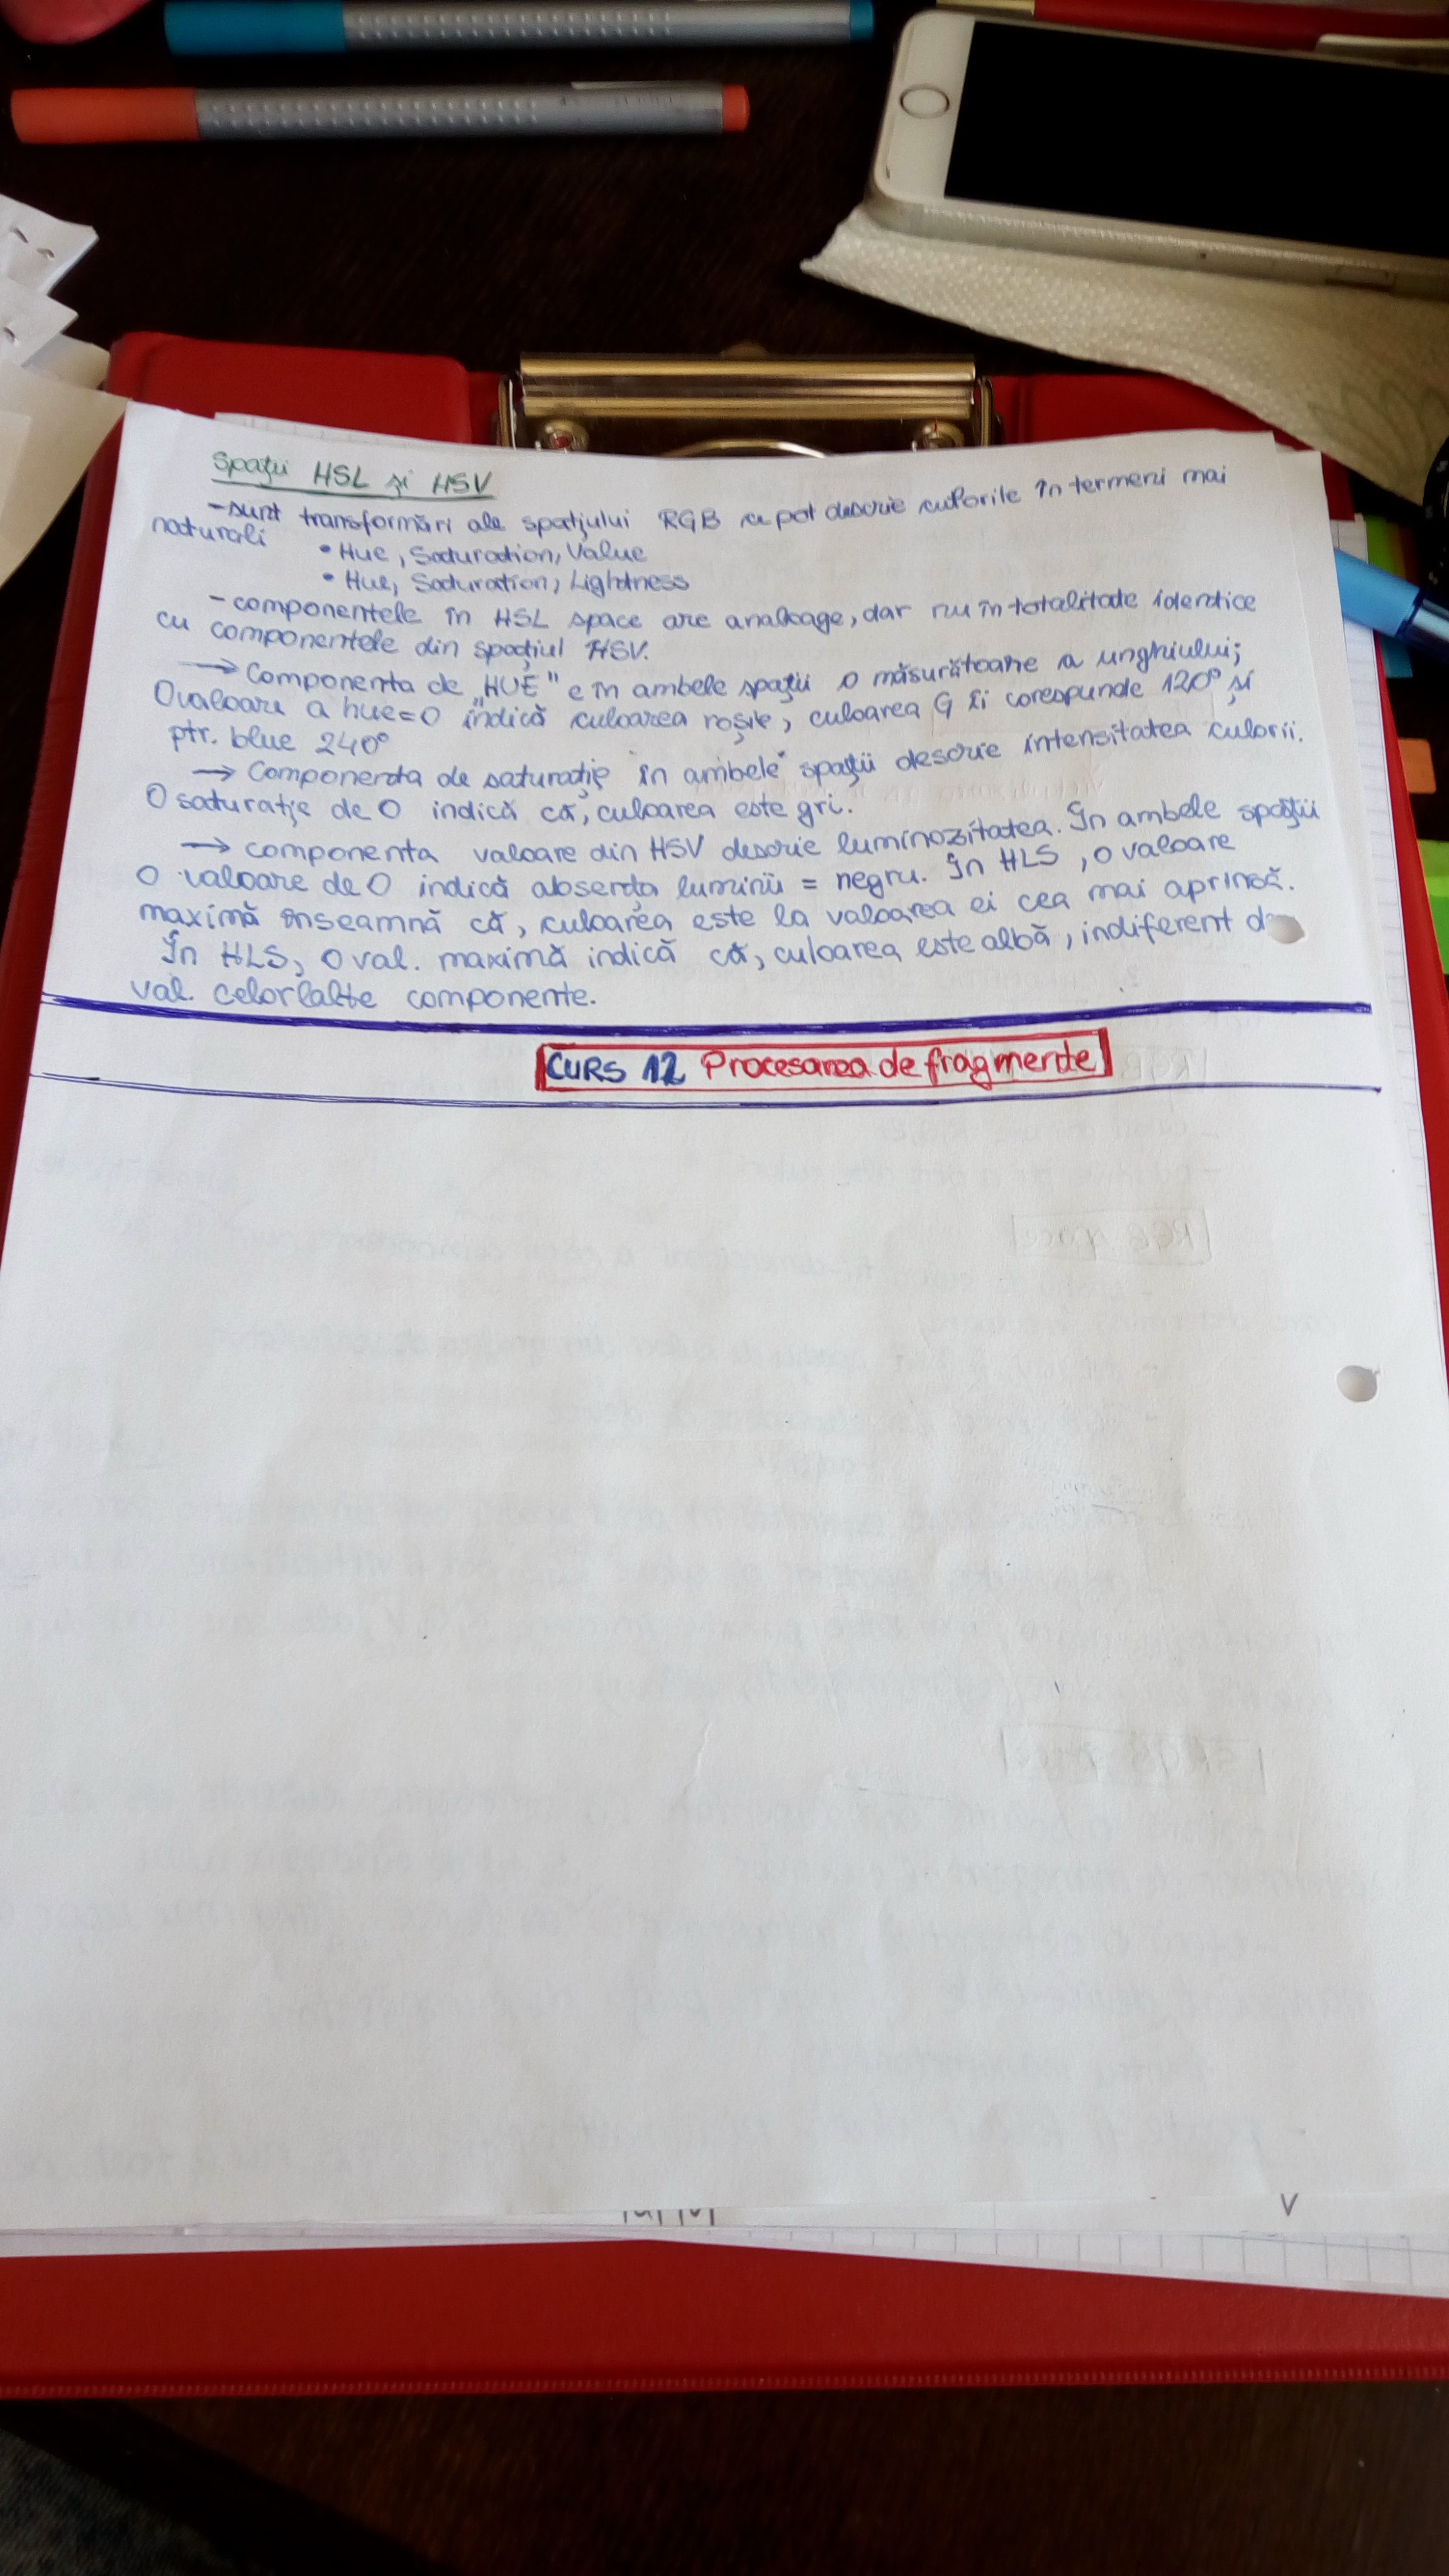 Spații HSL și HSV
-sunt transformări ale spațiului RGB ce pot descrie culorile în termeni mai
naturali
• Hue, Saturation, Value
• Hue, Saturation, Lightness
- componentele în HSL space are analoage, dar nu în totalitate identice
cu componentele din spațiul HSV.
→ Componenta de „HUE" e în ambele spații o măsurătoare a unghiului;
O valoare a hue=0 indică culoarea roșie, culoarea G îi corespunde 120° și
ptr. blue 240°
→ Componenta de saturație în ambele spații descrie intensitatea culorii.
O saturație de 0 indică că, culoarea este gri.
→ componenta valoare din HSV descrie luminozitatea. În ambele spații
O valoare de 0 indică absența luminii = negru. În HLS, o valoare
maximă înseamnă că, culoarea este la valoarea ei cea mai aprinsă.
În HLS, o val. maximă indică că, culoarea este albă, indiferent d
val. celorlalte componente.
CURS 12 Procesarea de fragmente
V